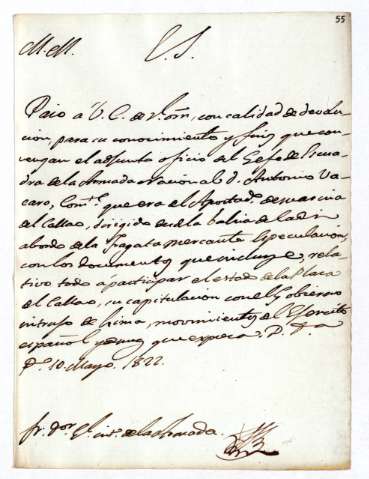 55
M. M. E. S.
Paso á V. E. de Rl. orn., con calidad de devolu-
cion, para su conocimiento y fines que con-
vengan el adjunto oficio del Gefe de Escua-
dra de la Armada nacional D. Antonio Va-
caro, Comte. que era del Apostado. de marina
del Callao, dirigido desde la bahia de Cadiz
abordo de la fragata mercante Especulacion,
con los documentos que incluye, rela-
tivo todo á participar el estado de la Plaza
del Callao, su capitulacion con el Gobierno
intruso de Lima, movimientos del Exercito
español y demas que expresa. D.
10 Mayo 1822.
Sr. Dor. Gl. de la Armada.